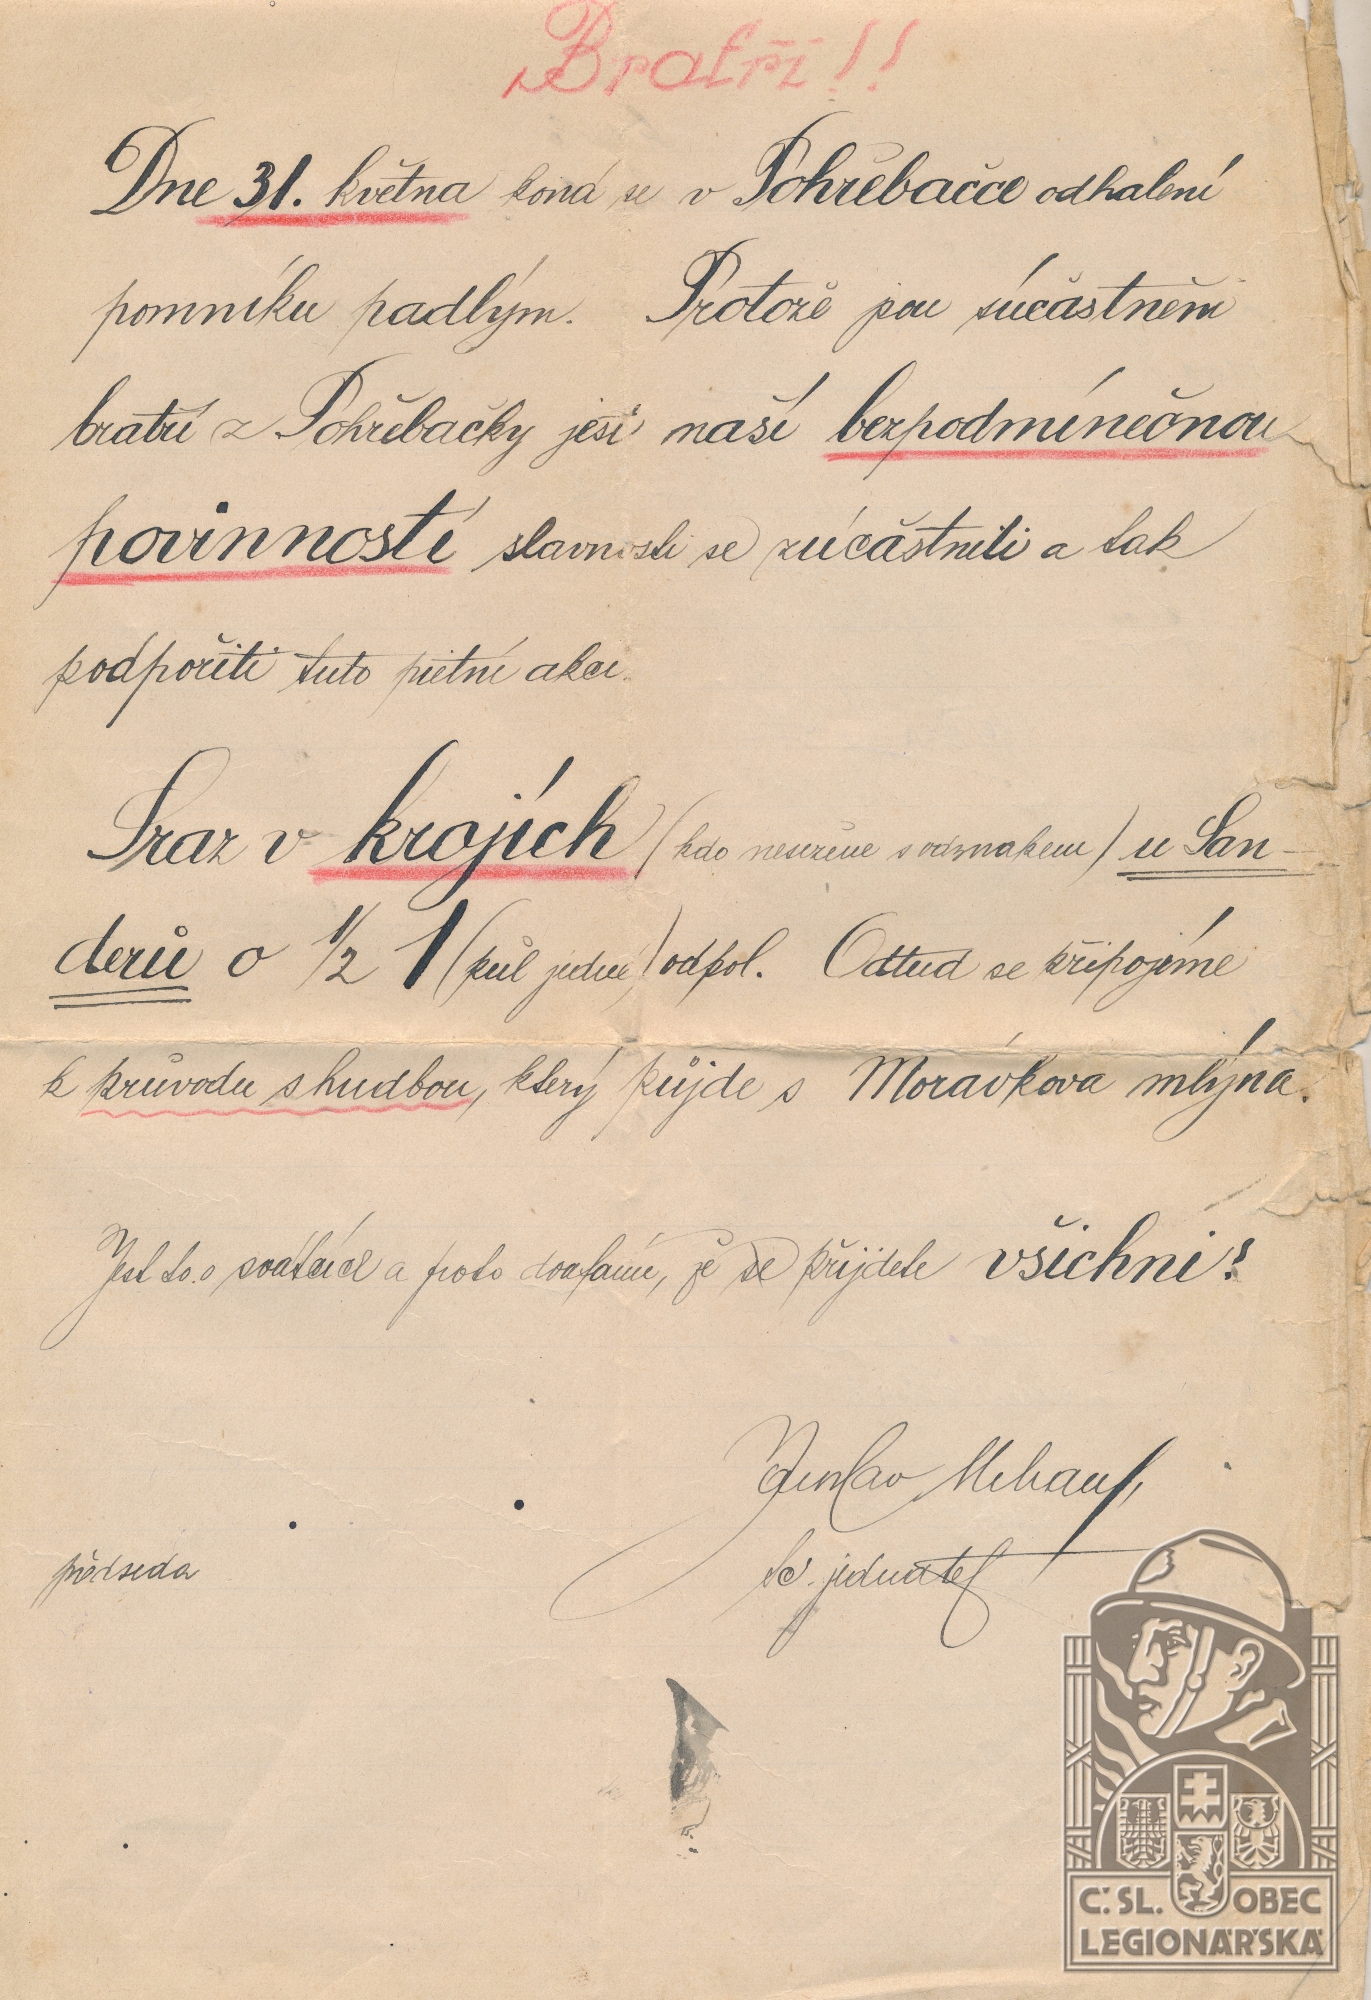 Bratři!!
Dne 31. května koná se v Pohřebačce odhalení
pomníku padlým. Protože jsou súčastněni
bratři z Pohřebačky jest naší bezpodmínečnou
povinností slavnosti se zúčastniti a tak
podpořiti tuto pietní akci.
Sraz v krojích (kdo nesežene s odznakem) u San-
derů o 1/2 1 (půl jedné) odpol. Odtud se připojíme
k průvodu s hudbou, který půjde s Morávkova mlýna.
Jest to o svátcích a proto doufám, že se přijdete všichni!
předseda
t.č. jednatel
Č. SL. OBEC
LEGIONÁŘSKÁ